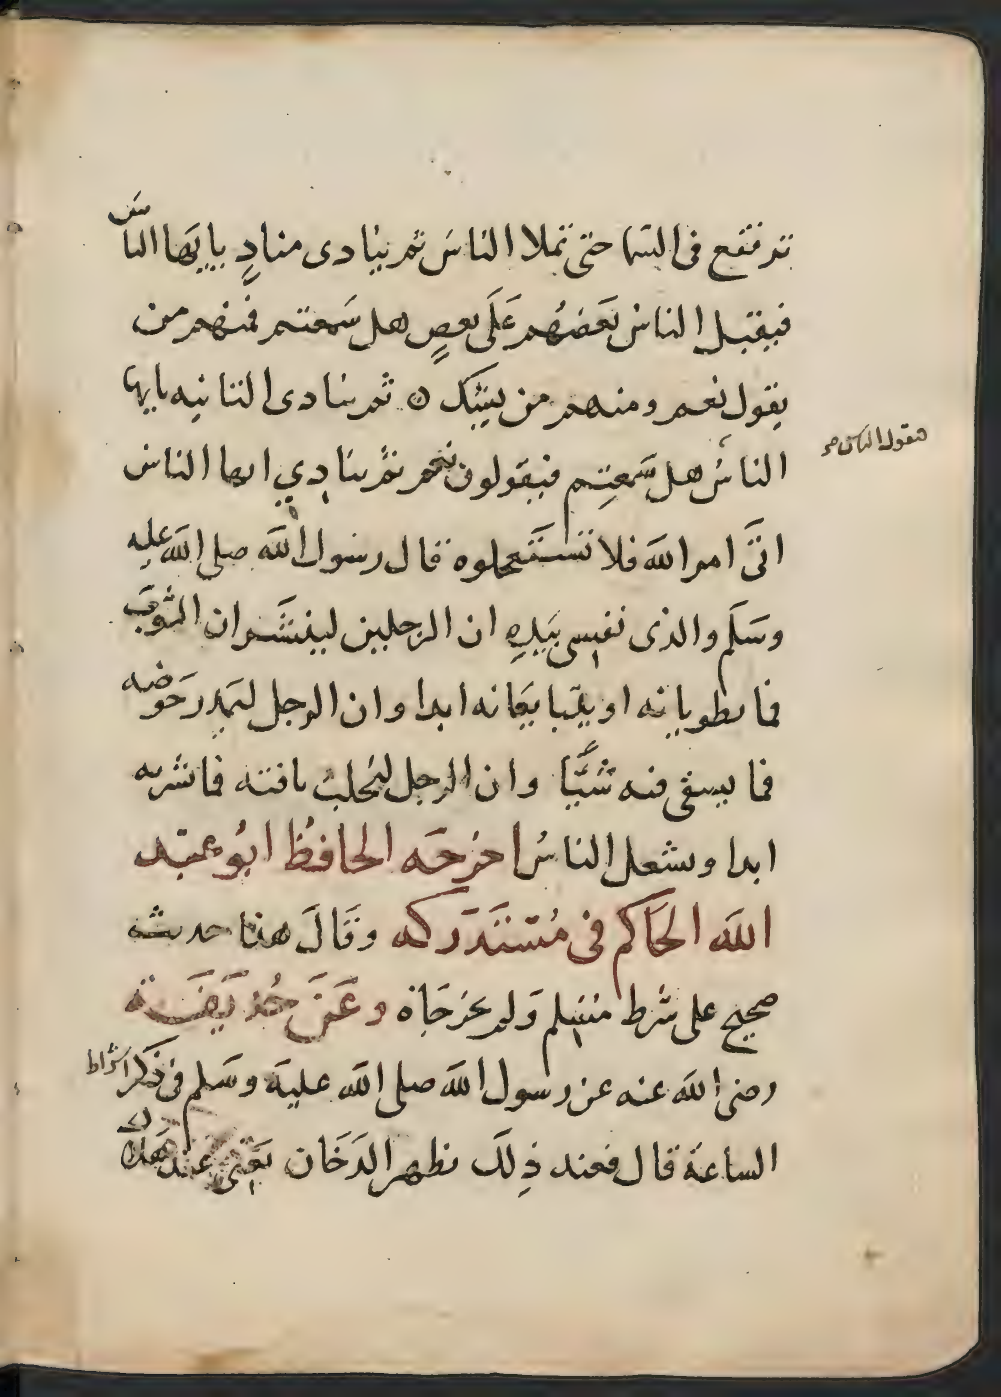 ترتفع فى السما حتى تملا الناس ثم ينادى مناد ياايها الناس
فيقبل الناس بعضهم على بعض هل سمعتم فمنهم من
يقول نعم ومنهم من يشك ثم ينادى الثانيه يايها
الناس هل سمعتم فيقولون نعم ثم ينادي ايها الناس
فيقول الناس
اتى امر الله فلا تستعجلوه قال رسول الله صلى الله عليه
وسلم والذى نفسى بيده ان الرجلين لينشران الثوب
فما يطويانه او يتبايعانه ابدا وان الرجل ليمدر حوضه
فما يسقى فيه شيًا وان الرجل ليحلب ناقته فما شربه
ابدا ويشغل الناس اخرجه الحافظ ابو عبد
الله الحاكم فى مستدركه وقال هذا حديث
صحيح على شرط مسلم ولم يخرجاه وعن حذيفة
رضى الله عنه عن رسول الله صلى الله عليه وسلم فى ذكر اشراط
الساعة قال فعند ذلك يظهر الدخان يعنى عند هلاك